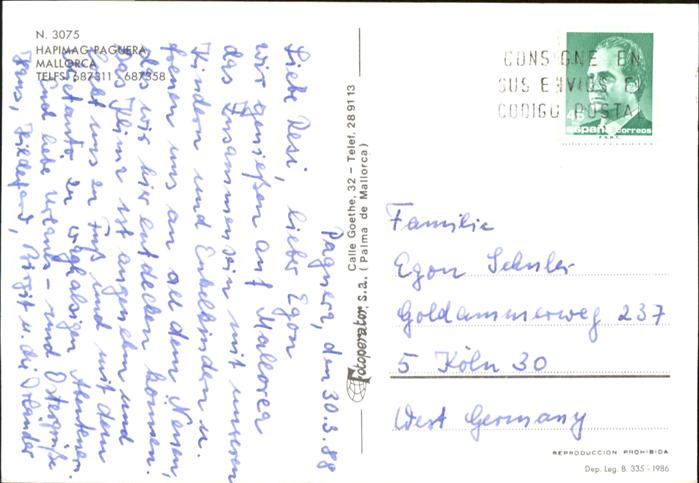 N. 3075
HAPIMAG PAGUERA
MALLORCA
TELFS. 687311 - 687358
Paguera, den 30.3.88
Liebe Resi, lieber Egon
wir genießen auf Mallorca
das Zusammensein mit unseren
Kindern und Enkelkindern u.
freuen uns an all dem Neuen,
das wir hier entdecken können.
Das Klima ist angenehm und
lädt uns zu Fuß und mit dem
zu waghalsigen Abenteuern
Euch liebe Urlaubs- und Ostergrüße
Hans, Hildegard, Birgit u. die
Fotoperator, s.a.
Calle Goethe, 32 - Telef. 28 91 13
(Palma de Mallorca)
CONSIGNE EN
SUS ENVIOS EL
CODIGO POSTAL
45
españa correos
F.N.M.T.
Familie
Egon Schuler
Goldammerweg 237
5 Köln 30
West Germany
REPRODUCCION PROHIBIDA
Dep. Leg. B. 335 - 1986